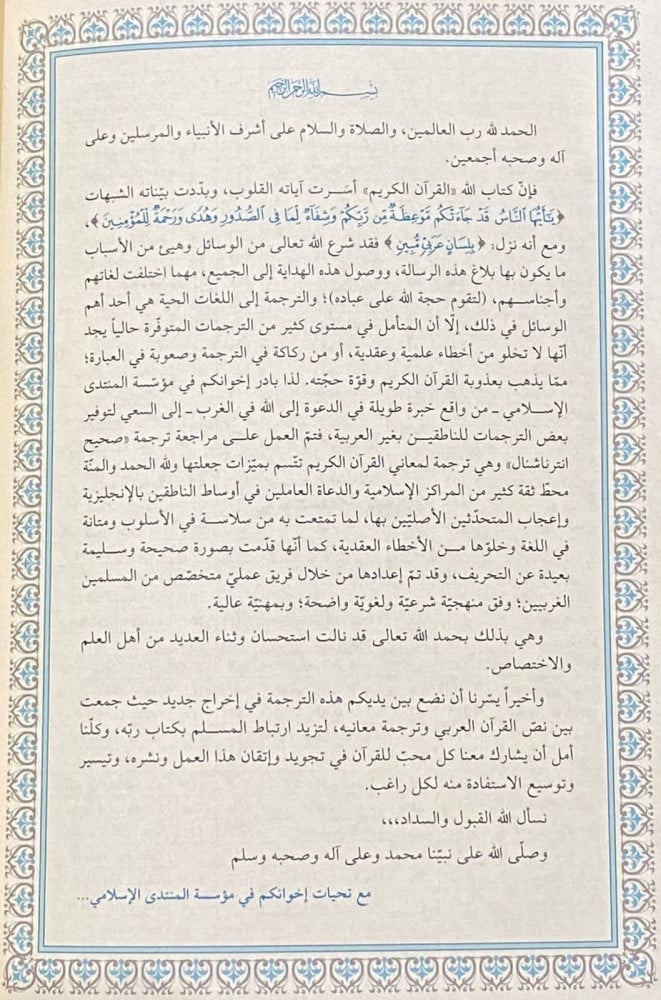 بسم الله الرحمن الرحيم
الحمد لله رب العالمين، والصلاة والسلام على أشرف الأنبياء والمرسلين وعلى
آله وصحبه أجمعين.
فإنّ كتاب الله «القرآن الكريم» أسَرت آياته القلوب، وبدّدت بيّناته الشبهات
﴿يَٰٓأَيُّهَا ٱلنَّاسُ قَدْ جَآءَتْكُم مَّوْعِظَةٌ مِّن رَّبِّكُمْ وَشِفَآءٌ لِّمَا فِى ٱلصُّدُورِ وَهُدًى وَرَحْمَةٌ لِّلْمُؤْمِنِينَ﴾،
ومع أنه نزل: ﴿بِلِسَانٍ عَرَبِىٍّ مُّبِينٍ﴾ فقد شرع الله تعالى من الوسائل وهيئ من الأسباب
ما يكون بها بلاغ هذه الرسالة، ووصول هذه الهداية إلى الجميع، مهما اختلفت لغاتهم
وأجناسهم، (لتقوم حجة الله على عباده)؛ والترجمة إلى اللغات الحية هي أحد أهم
الوسائل في ذلك، إلّا أن المتأمل في مستوى كثير من الترجمات المتوفّرة حالياً يجد
أنّها لا تخلو من أخطاء علمية وعقدية، أو من ركاكة في الترجمة وصعوبة في العبارة؛
ممّا يذهب بعذوبة القرآن الكريم وقوّة حجّته. لذا بادر إخوانكم في مؤسّسة المنتدى
الإسلامي ـ من واقع خبرة طويلة في الدعوة إلى الله في الغرب ـ إلى السعي لتوفير
بعض الترجمات للناطقين بغير العربية، فتمّ العمل على مراجعة ترجمة «صحيح
انترناشنال» وهي ترجمة لمعاني القرآن الكريم تتّسم بميّزات جعلتها ولله الحمد والمنّة
محطّ ثقة كثير من المراكز الإسلامية والدعاة العاملين في أوساط الناطقين بالإنجليزية
وإعجاب المتحدّثين الأصليّين بها، لما تمتعت به من سلاسة في الأسلوب ومتانة
في اللغة وخلوّها من الأخطاء العقدية، كما أنّها قدّمت بصورة صحيحة وسليمة
بعيدة عن التحريف، وقد تمّ إعدادها من خلال فريق عمليّ متخصّص من المسلمين
الغربيين؛ وفق منهجيّة شرعيّة ولغويّة واضحة؛ وبمهنيّة عالية.
وهي بذلك بحمد الله تعالى قد نالت استحسان وثناء العديد من أهل العلم
والاختصاص.
وأخيراً يسّرنا أن نضع بين يديكم هذه الترجمة في إخراج جديد حيث جمعت
بين نصّ القرآن العربي وترجمة معانيه، لتزيد ارتباط المسلم بكتاب ربّه، وكلّنا
أمل أن يشارك معنا كل محبّ للقرآن في تجويد وإتقان هذا العمل ونشره، وتيسير
وتوسيع الاستفادة منه لكل راغب.
نسأل الله القبول والسداد،،،
وصلّى الله على نبيّنا محمد وعلى آله وصحبه وسلم
مع تحيات إخوانكم في مؤسسة المنتدى الإسلامي...